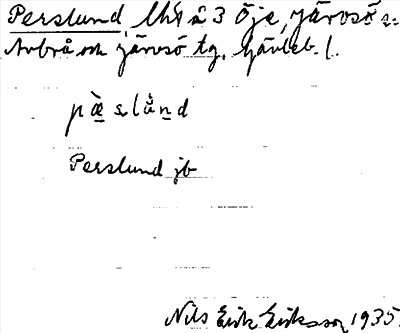 Perslund lht å 3 Öje, Järvsö s:n
Arbrå och Järvsö tg. Gävleb. l.
pæ̀slånd
Perslund jb
Nils Erik Eriksson 1935.